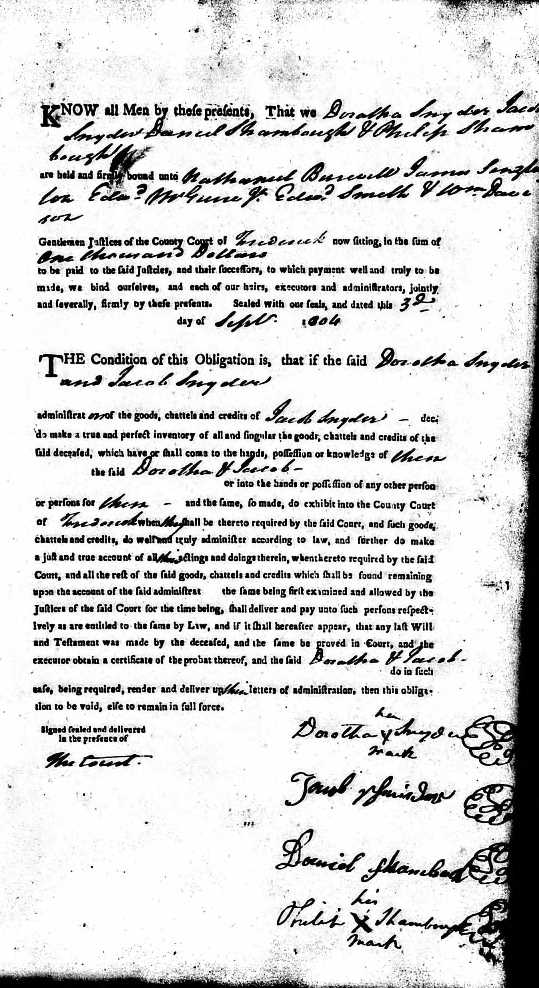 KNOW all Men by these presents, That we Dorotha Snyder Jacob
Snyder Daniel Shambough & Philip Sham
bough
are held and firmly bound unto Nathaniel Burwell James Single
ton Edwd McGuire Jr Edwd Smith & Wm Davi
son
Gentlemen Justices of the County Court of Frederick now sitting, in the sum of
One thousand Dollars
to be paid to the said Justcies, and their successors, to which payment well and truly to be
made, we bind ourselves, and each of our heirs, executors and administrators, jointly
and severally, firmly by these presents. Sealed with our seals, and dated this 3d
day of Sept. 1804
THE Condition of this Obligation is, that if the said Dorotha Snyder
and Jacob Snyder
administrators of the goods, chattels and credits of Jacob Snyder - dec:
do make a true and perfect inventory of all and singular the goods, chattels and credits of the
said deceased, which have or shall come to the hands, possession or knowledge of them
the said Dorotha & Jacob -
or into the hands or possession of any other person
or persons for them - and the same, so made, do exhibit into the County Court
of Frederick when they shall be thereto required by the said Court, and such goods,
chattels and credits, do well and truly administer according to law, and further do make
a just and true account of all their actings and doings therein, when thereto required by the said
Court, and all the rest of the said goods, chattels and credits which shall be found remaining
upon the account of the said administrat the same being first examined and allowed by the
Justices of the said Court for the time being, shall deliver and pay unto such persons respect-
ively as are entitled to the same by Law, and if it shall hereafter appear, that any last Will
and Testament was made by the deceased, and the same be proved in Court, and the
executor obtain a certificate of the probat thereof, and the said Dorotha & Jacob -
do in such
case, being required, render and deliver up their letters of administration, then this obliga-
tion to be void, else to remain in full force.
Signed sealed and delivered
in the presence of
The Court
her
Dorotha X Snyder
mark
Jacob
Daniel
his
Philip X Shambough
mark